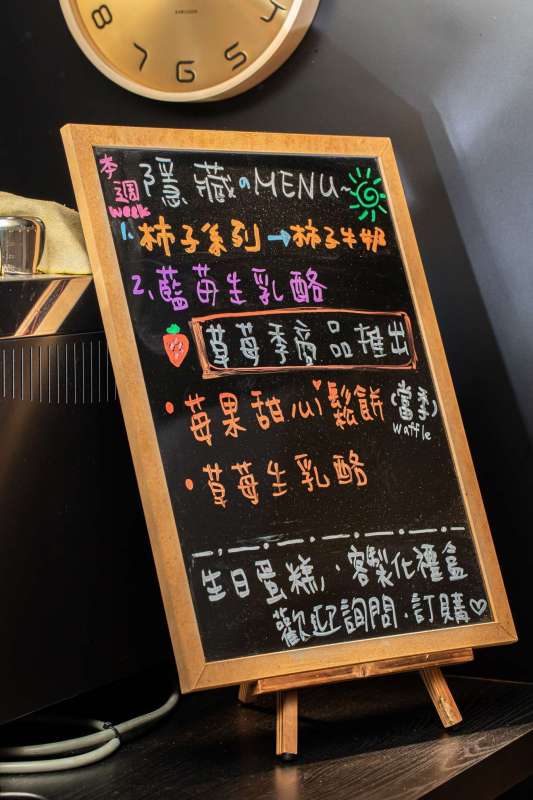 8 7 6 5 4
本週 week 隱藏のMENU~
1. 柿子系列→柿子牛奶
2、藍莓生乳酪
草莓季商品推出
• 莓果甜心鬆餅(當季)
waffle
• 草莓生乳酪
生日蛋糕、客製化禮盒
歡迎詢問.訂購♡